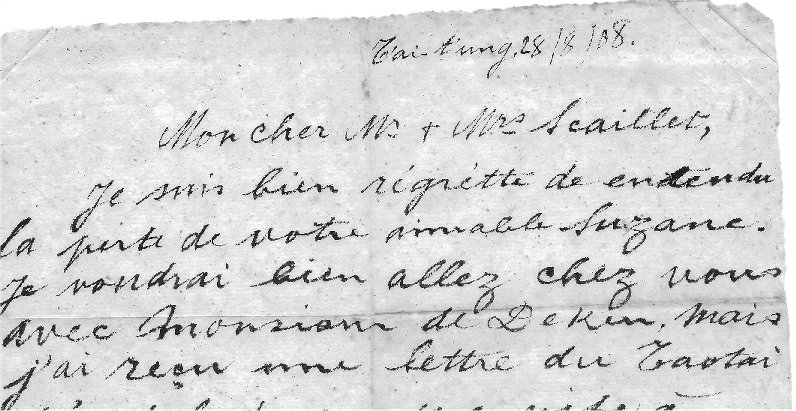 Tai-t'ung. 28/8/08.
Mon cher Mr + Mrs Scaillet,
Je suis bien régrétte de entendu
la perte de votre aimable Suzane.
Je voudrai bien allez chez vous
avec Monsieur de Deken, mais
j'ai reçu une lettre du Taotai